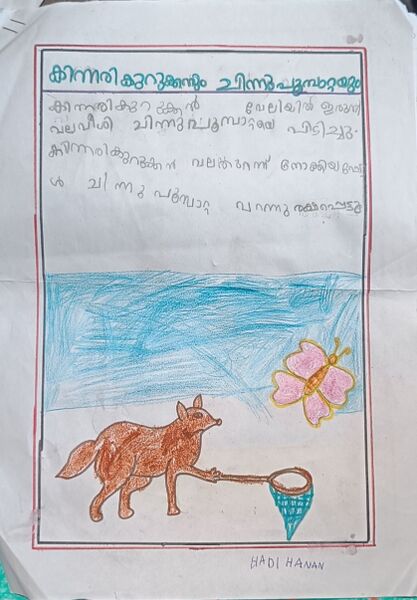 കിന്നരികുറുക്കനും ചിന്നുപൂമ്പാറ്റയും
കിന്നരികുറുക്കൻ വേലിയിൽ ഇരുന്ന
വലവീശി ചിന്നുപൂമ്പാറ്റയെ പിടിച്ചു.
കിന്നരികുറുക്കൻ വലതുറന്ന് നോക്കിയപ്പോ
ൾ ചിന്നു പൂമ്പാറ്റ പറന്നു രക്ഷപ്പെട്ടു
HADI HANAN